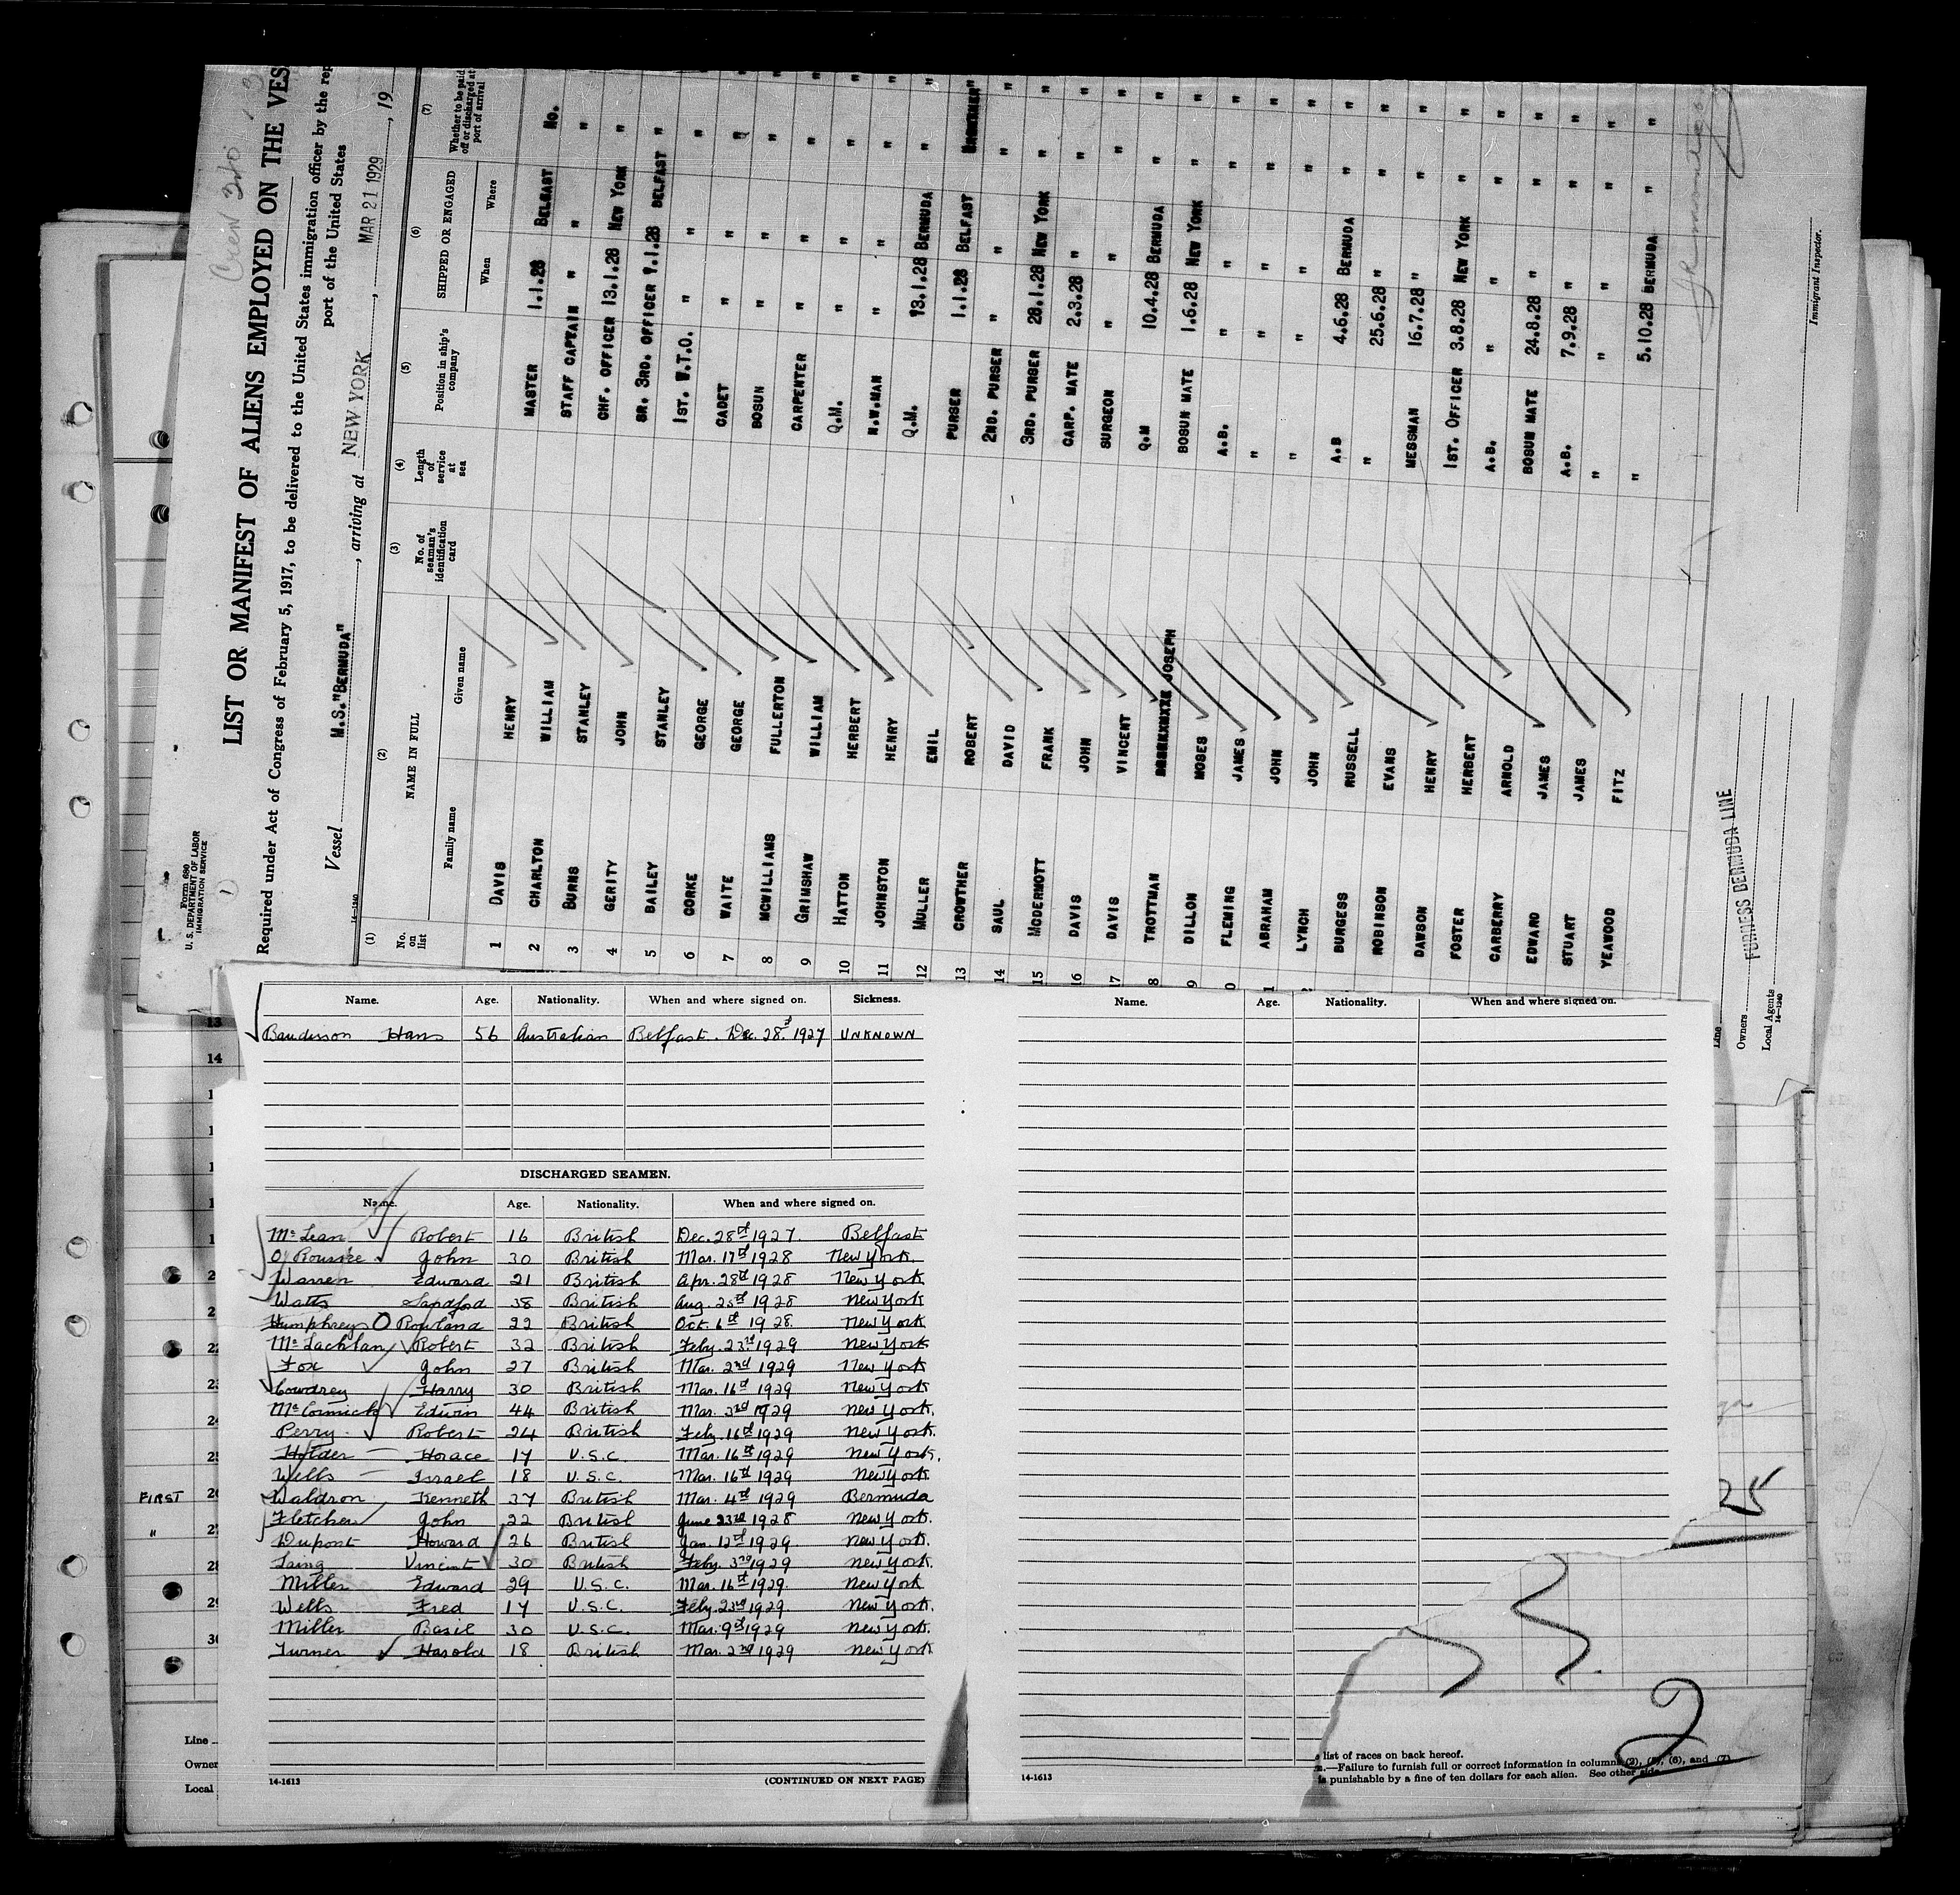 Form 680
U. S. DEPARTMENT OF LABOR
IMMIGRATION SERVICE
LIST OR MANIFEST OF ALIENS EMPLOYED ON THE VES
Required under Act of Congress of February 5, 1917, to be delivered to the United States immigration officer by the rep
port of the United States
Vessel M.S."BERMUDA", arriving at NEW YORK, MAR 21 1929, 19
14-1240
(1) (2) (3) (4) (5) (6) (7)
No. on list NAME IN FULL No. of seaman's identification card Length of service at sea Position in ship's company SHIPPED OR ENGAGED Whether to be paid off or discharged at port of arrival
Family name Given name When Where
1 DAVIS HENRY MASTER 1.1.28 BELFAST NO.
2 CHARLTON WILLIAM STAFF CAPTAIN " " "
3 BURNS STANLEY CHF. OFFICER 13.1.28 NEW YORK "
4 GERITY JOHN SR. 3RD. OFFICER 1.1.28 BELFAST "
5 BAILEY STANLEY 1ST. W.T.O. " " "
6 CORKE GEORGE CADET " " "
7 WAITE GEORGE BOSUN " " "
8 MCWILLIAMS FULLERTON CARPENTER " " "
9 GRIMSHAW WILLIAM Q.M. " " "
10 HATTON HERBERT N.W.MAN " " "
11 JOHNSTON HENRY Q.M. 13.1.28 BERMUDA "
12 MULLER EMIL PURSER 1.1.28 BELFAST
13 CROWTHER ROBERT 2ND. PURSER " " "
14 SAUL DAVID 3RD. PURSER 28.1.28 NEW YORK "
15 MCDERMOTT FRANK CARP. MATE 2.3.28 " "
16 DAVIS JOHN SURGEON " " "
17 DAVIS VINCENT Q.M 10.4.28 BERMUDA "
8 TROTTMAN JOSEPH BOSUN MATE 1.6.28 NEW YORK "
9 DILLON MOSES A.B. " " "
0 FLEMING JAMES " " " "
1 ABRAHAM JOHN " " " "
LYNCH JOHN A.B 4.6.28 BERMUDA "
BURGESS RUSSELL " 25.6.28 " "
ROBINSON EVANS MESSMAN 16.7.28 " "
DAWSON HENRY 1ST. OFFICER 3.8.28 NEW YORK "
FOSTER HERBERT A.B. " " "
CARBERRY ARNOLD BOSUN MATE 24.8.28 " "
EDWARD JAMES A.B. 7.9.28 " "
STUART JAMES " " " "
YEAWOOD FITZ " 5.10.28 BERMUDA "
Immigrant Inspector.
Line
Owners
FURNESS BERMUDA LINE
Local Agents
14-1240
Name. Age. Nationality. When and where signed on. Sickness.
Baudisson Hans 56 Australian Belfast. Dec. 28th 1927 UNKNOWN
DISCHARGED SEAMEN.
Name. Age. Nationality. When and where signed on.
McLean Robert 16 British Dec. 28th 1927. Belfast
O'Rourke John 30 British Mar. 17th 1928 New York.
Warren Edward 21 British Apr. 28th 1928 New York
Watts Sandford 38 British Aug. 25th 1928 New York
Humphreys Rowland 22 British Oct. 6th 1928. New York
McLachlan Robert 32 British Feby. 23rd 1929 New York
Fox John 27 British Mar. 2nd 1929 New York
Cowdrey Harry 30 British Mar. 16th 1929 New York
McCormick Edwin 44 British Mar. 3rd 1929 New York.
Perry. Robert 24 British Feby. 16th 1929 New York.
Holder Horace 17 U.S.C. Mar. 16th 1929 New York.
Wells Israel 18 U.S.C. Mar. 16th 1929 New York
Waldron Kenneth 37 British Mar. 4th 1929 Bermuda
Fletcher John 22 British June 23rd 1928 New York.
Dupont Howard 26 British Jan. 12th 1929. New York.
Laing Vincent 30 British Feby. 3rd 1929 New York.
Miller Edward 29 U.S.C. Mar. 16th 1929. New York
Wells Fred 17 U.S.C. Feby 23rd 1929 New York.
Miller Basil 30 U.S.C. Mar. 9th 1929 New York.
Turner Harold 18 British Mar. 2nd 1929 New York
14-1613 (CONTINUED ON NEXT PAGE)
Name. Age. Nationality. When and where signed on.
14-1613
13
14
22
23
24
25
FIRST 26
" 27
28
29
30
Line
Owner
Local
25
2
list of races on back hereof.
.—Failure to furnish full or correct information in columns (2), (5), (6), and (7)
is punishable by a fine of ten dollars for each alien. See other side.